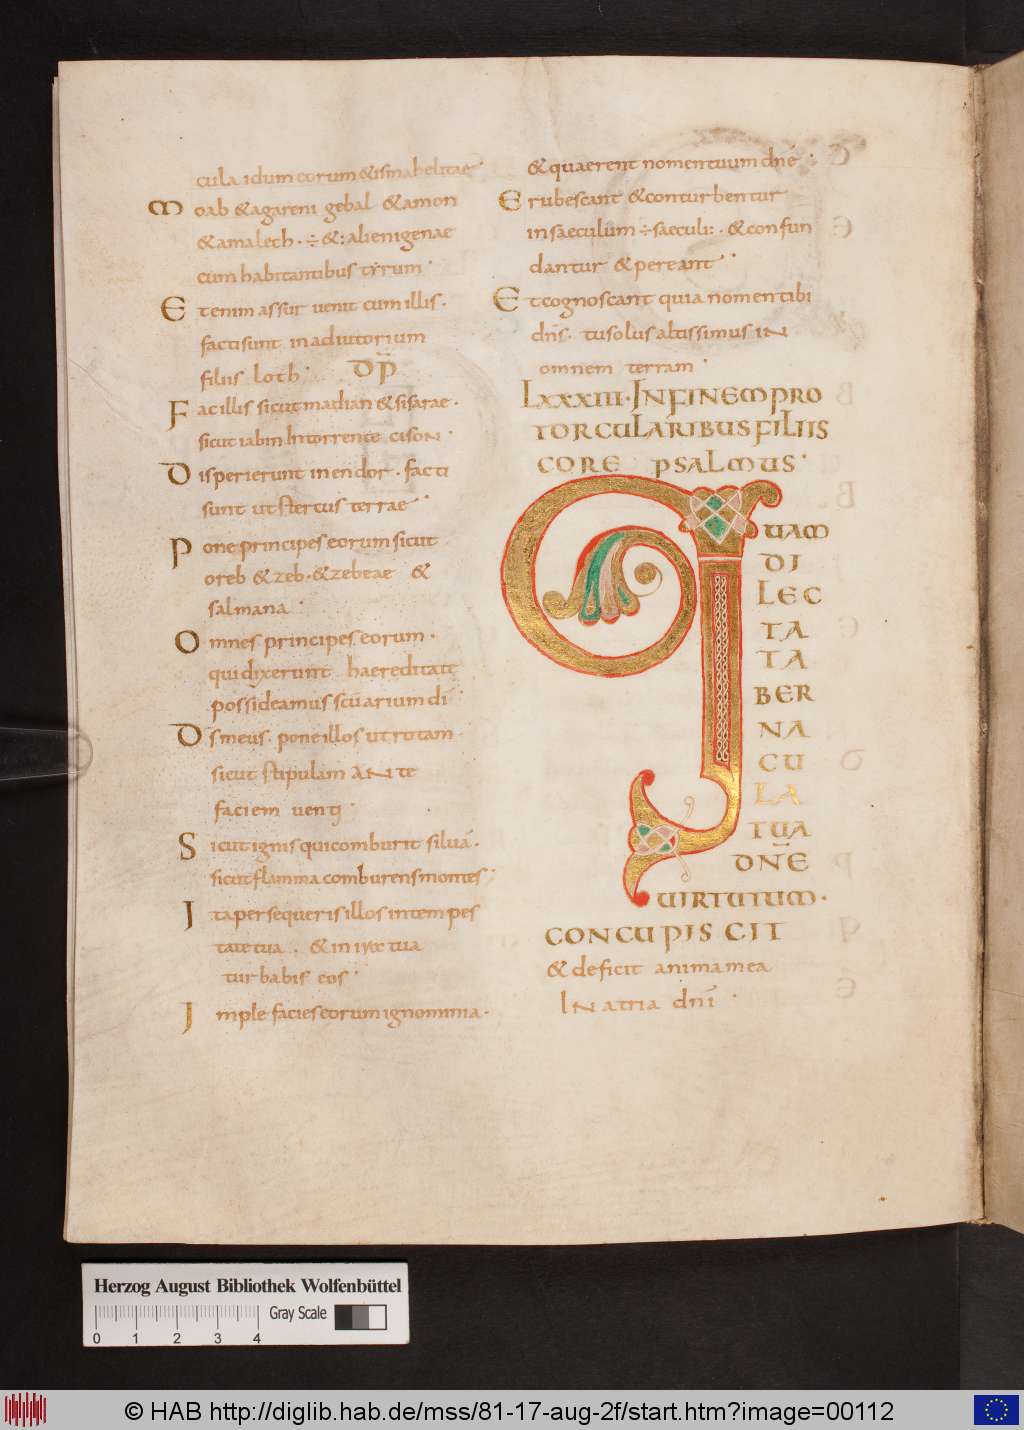 cula idumeorum & ismahelitae·
Moab & agareni gebal & amon
& amalech· ÷ &: alienigenae
cum habitantibus tyrum·
Etenim assur uenit cum illis·
facti sunt in adiutorium
filiis loth· DP̄
Fac illis sicut madian & sisarae·
sicut iabin In torrente cisoN·
Disperierunt in endor· facti
sunt ut stercus terrae·
Pone principes eorum sicut
oreb & zeb· & zebeae &
salmana·
Omnes principes eorum·
qui dixerunt haereditate
possideamus scūarium dī
Ds meus· pone illos ut rotam
sicut stipulam ANte
faciem uenti·
Sicut ignis qui comburit siluā·
sicut flamma comburens montes·
Ita persequeris illos in tempes
tate tua· & in ira tua
turbabis eos·
Imple facies eorum ignominia·
& quaerent nomen tuum dnē·
Erubescant & conturbentur
in saeculum ÷ saeculi:· & confun
dantur & pereant·
Et cognoscant quia nomen tibi
dns̄· tu solus altissimus iN
omnem terram·
LXXXIII· IN FINEM PRO
TORCULARIBUS FILIIS
CORE PSALMUS·
QUAM
DI
LEC
TA
TA
BER
NA
CU
LA
TUA
DN̄E
UIRTUTUM·
CONCUPISCIT
& deficit anima mea
IN atria dnī·
Herzog August Bibliothek Wolfenbüttel
Gray Scale
0 1 2 3 4
© HAB http://diglib.hab.de/mss/81-17-aug-2f/start.htm?image=00112